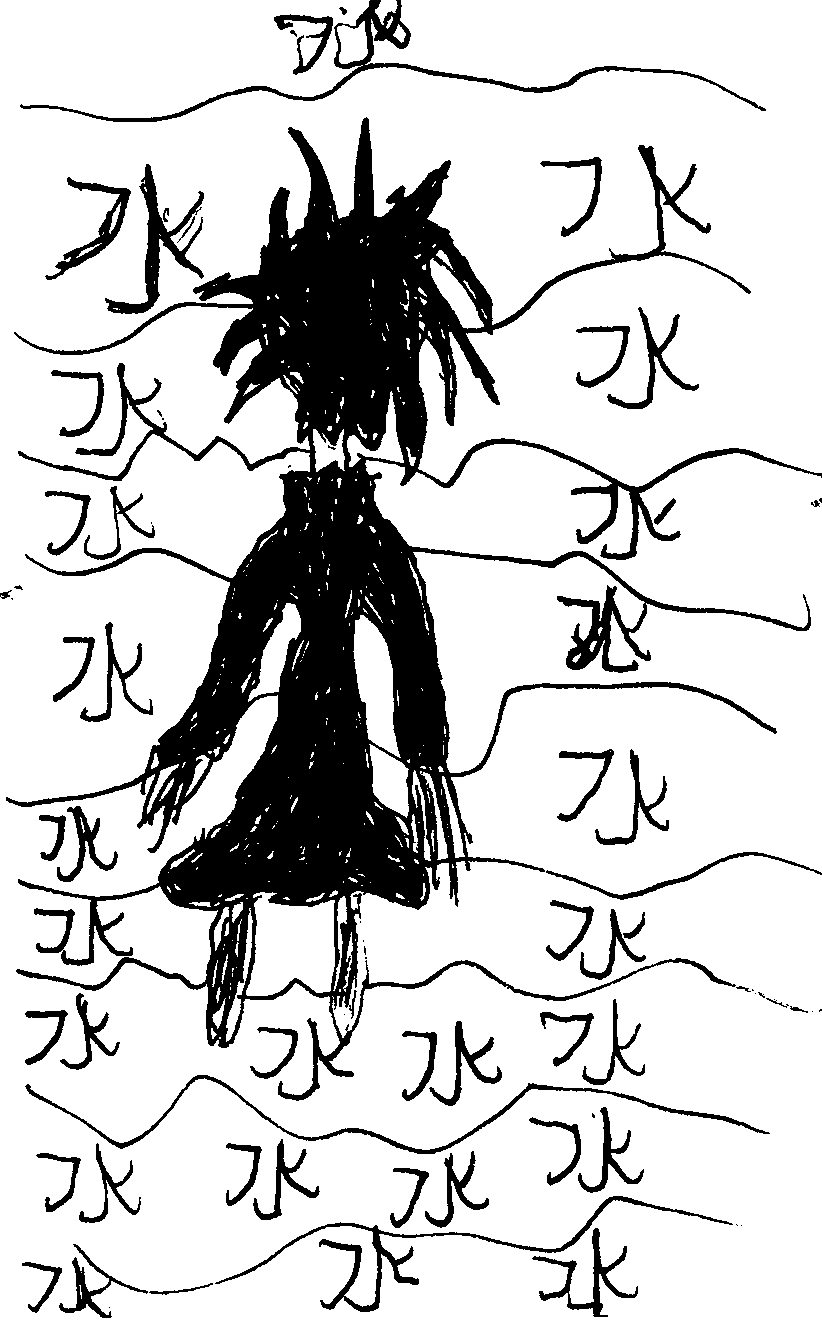 水 水
水
水
水 水
水
水
水
水
水 水
水 水 水 水
水 水 水 水
水 水 水